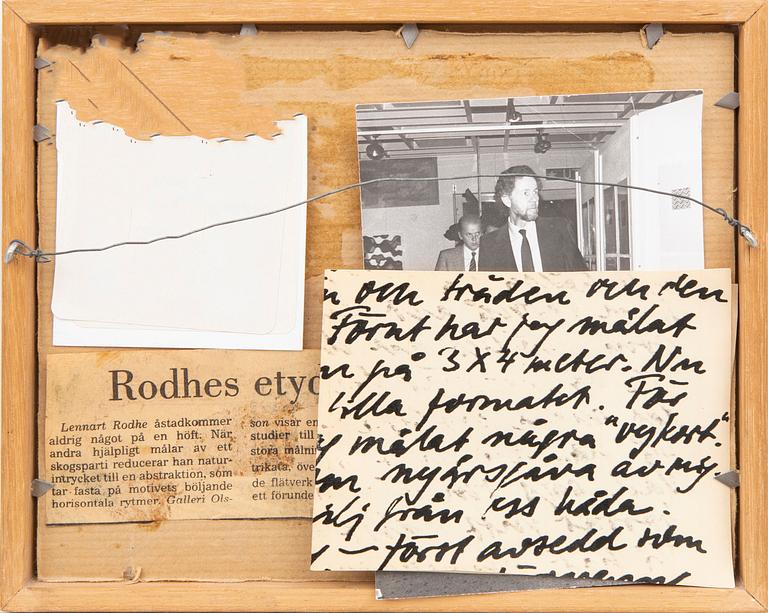 Rodhes etyd
Lennart Rodhe åstadkommer
aldrig något på en höft. När
andra hjälpligt målar av ett
skogsparti reducerar han natur-
intrycket till en abstraktion, som
tar fasta på motivets böljande
horisontala rytmer. Galleri Ols-
son visar en
studier till
stora målnin
trikata, öve
de flätverk
ett förunde
n och tråden och den
Förut har jag målat
n på 3 x 4 meter. Nu
lilla formatet. För
g målat några "vykort."
m nyårsgåva av mig.
från oss båda.
– först avsedd som